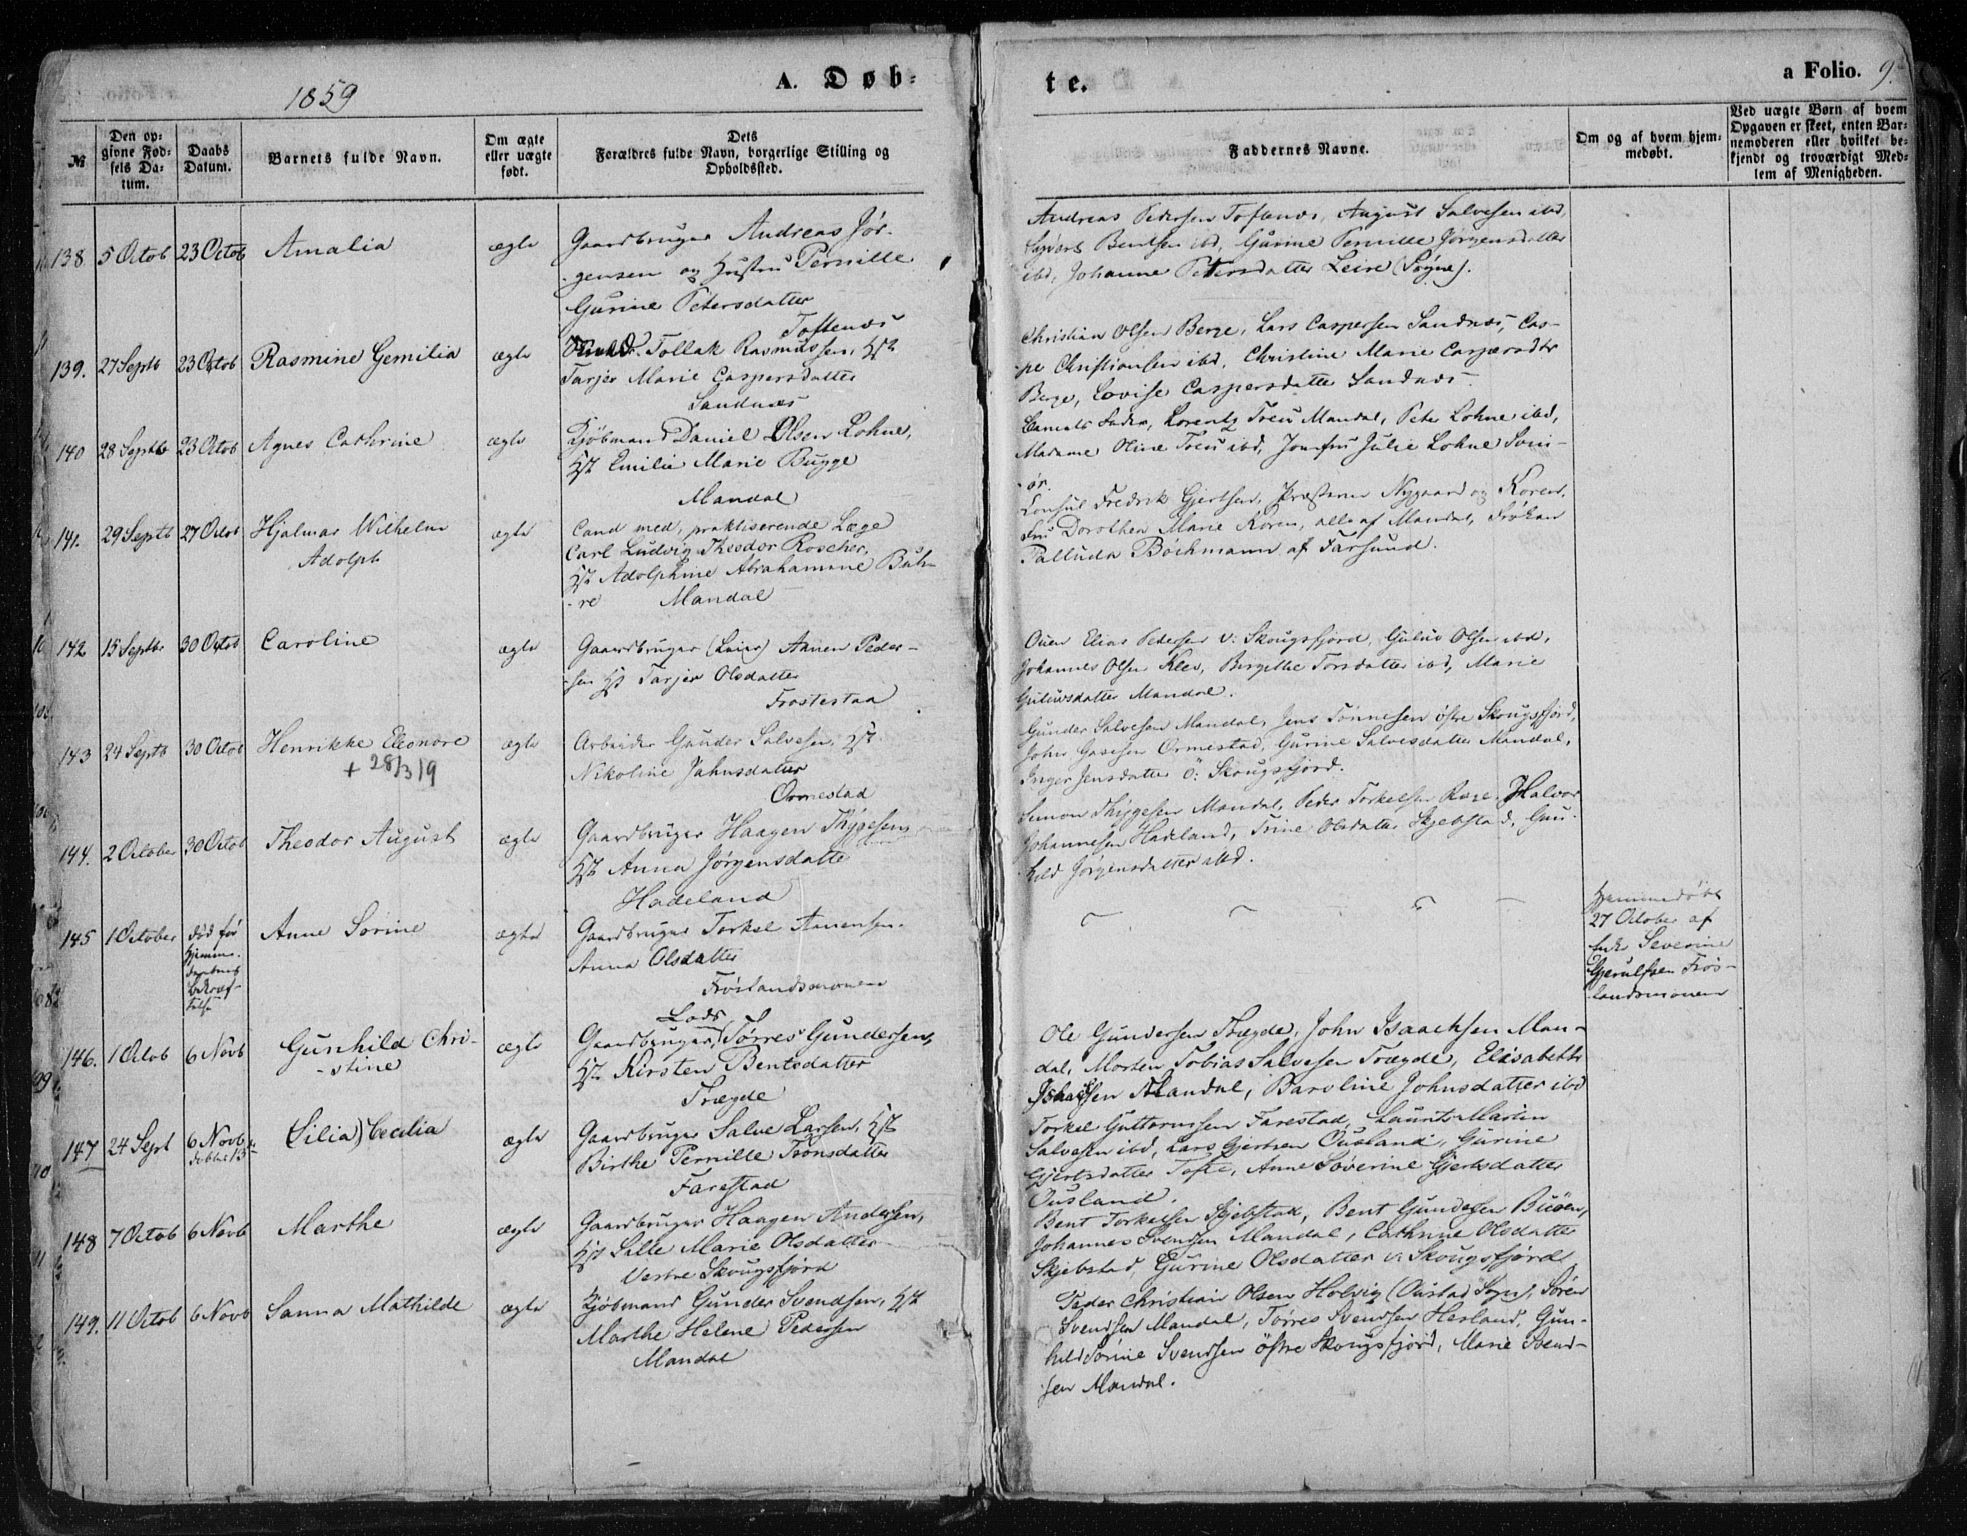 1859
A. Døb-
te.
a Folio. 9.
№
Den op-
givne Fød-
sels Da-
tum.
Daabs
Datum.
Barnets fulde Navn.
Om ægte
eller uægte
født.
Dets
Forældres fulde Navn, borgerlige Stilling og
Opholdssted.
Faddernes Navne.
Om og af hvem hjem-
medøbt.
Ved uægte Børn af hvem
Opgaven er skeet, enten Bar-
nemoderen eller hvilket be-
kjendt og troværdigt Med-
lem af Menigheden.
138 5 Octob 23 Octob Amalia ægte
Gaardbruger Andreas Jør-
gensen og Hustru Pernille
Gurine Petersdatter
Toftenes
Andreas Pedersen Toftenes, August Salvesen ibd,
Bentsen ibd, Gurine Pernille Jørgensdatter
ibd, Johanne Petersdatter Leire (Søgne).
139. 27 Septb 23 Octob Rasmine Gemilia ægte
Tollak Rasmussen, Hst
Tarjer Marie Caspersdatter
Sandnæs
Christian Olsen Berge, Lars Caspersen Sandnæs, Cas-
pe Christiansen ibd, Christine Marie Caspersdtr
Berge, Lovise Caspersdatter Sandnæs
140 28 Septb 23 Octob Agnes Cathrine ægte
Kjøbmand Daniel Olsen Lohne,
Hst Emilie Marie Bugge
Mandal
Barnets Fader, Lorentz Mandal, Peter Lohne ibd,
Madame Oline ibd, Jomfru Julie Lohne Svin-
ør.
141. 29 Septb 27 Octob Hjalmar Wilhelm
Adolph
ægte
Cand med, praktiserende Læge
Carl Ludvig Theodor Roscher,
Hst Adolphine Abrahamine Buh-
re Mandal
Consul Fredrik Gjertsen, Præsterne Nygaard og Koren,
Fru Dorothea Marie Koren, alle af Mandal, Frøken
Palluda Bochmann af Farsund.
142 15 Septb 30 Octob Caroline ægte
Gaardbruger (Leier) Aanen Peder-
sen Hst Tarjer Olsdatter
Frostestaa
Ouen Elias Pedersen v: Skougsfjord, Guliv Olsen ibd,
Johannes Olsen Klev, Bergithe Torsdatter ibd, Marie
Gulivsdatter Mandal.
143 24 Septb 30 Octob Henrikke Eleonore
+ 28/3 19
ægte
Arbeider Gunder Salvesen, Hst
Nikoline Jahnsdatter
Ormestad
Gunder Salvesen Mandal, Jens Tønnesen østre Skougsfjord,
John Ormestad, Gurine Salvesdatter Mandal,
Inger Jensdatter ö: Skougsfjord.
144. 2 October 30 Octob Theodor August ægte
Gaardbruger Haagen Thygesen,
Hst Anna Jørgensdatter
Hadeland
Simon Thygesen Mandal, Peder Torkelsen, Halvor
Johannesen Hadeland, Trine Olsdatter Skjebstad, Gun-
hild Jørgensdatter ibd.
145 1 October død før
Hjemme-
daabens
Bekræf-
telse
Anne Sorine ægte
Gaardbruger Torkel Aanensen
Anna Olsdatter
Frøslandsmonen
Hjemmedøbt
27 October af
Enke Severine
Gjerulfsen Frøs-
landsmonen
146. 1 Octob 6 Novb Gunhild Chri-
-stine
ægte
Lods
Gaardbruger, Tørres Gundersen,
Hst Kirsten Bentsdatter
Trægde
Ole Gundersen Trægde, John Isaachsen Man-
dal, Morten Tobias Salvesen Trægde, Elisabeth
Isaachsen Mandal, Baroline Johnsdatter ibd
147 24 Sept 6 Novb
(Silia) Cecilia ægte
Gaardbruger Salve Larsen, Hst
Birthe Pernille Tronsdatter
Farestad
Torkel Guttormsen Farestad, Laurits Martin
Salvesen ibd, Lars Gjertsen Ousland, Gurine
Gjertsdatter Tofte, Anne Severine Gjertsdatter
Ousland.
148 7 Octob 6 Novb Marthe ægte
Gaardbruger Haagen Andersen,
Hst Sille Marie Olsdatter
Vestre Skougsfjord
Bent Torkelsen Skjebstad, Bent Gundersen Buöen,
Johannes Svendsen Mandal, Cathrine Olsdatter
Skjebstad, Gurine Olsdatter v: Skougsfjord
149. 11 Octob 6 Novb Sanna Mathilde ægte
Kjøbmand Gunder Svendsen, Hst
Marthe Helene Pedersen
Mandal
Peder Christian Olsen Holvig (Oustad Sogn), Sören
Svendsen Mandal, Tørres Svendsen Hesland, Gun-
hild Sørine Svendsen østre Skougsfjord, Marie Svend-
sen Mandal.